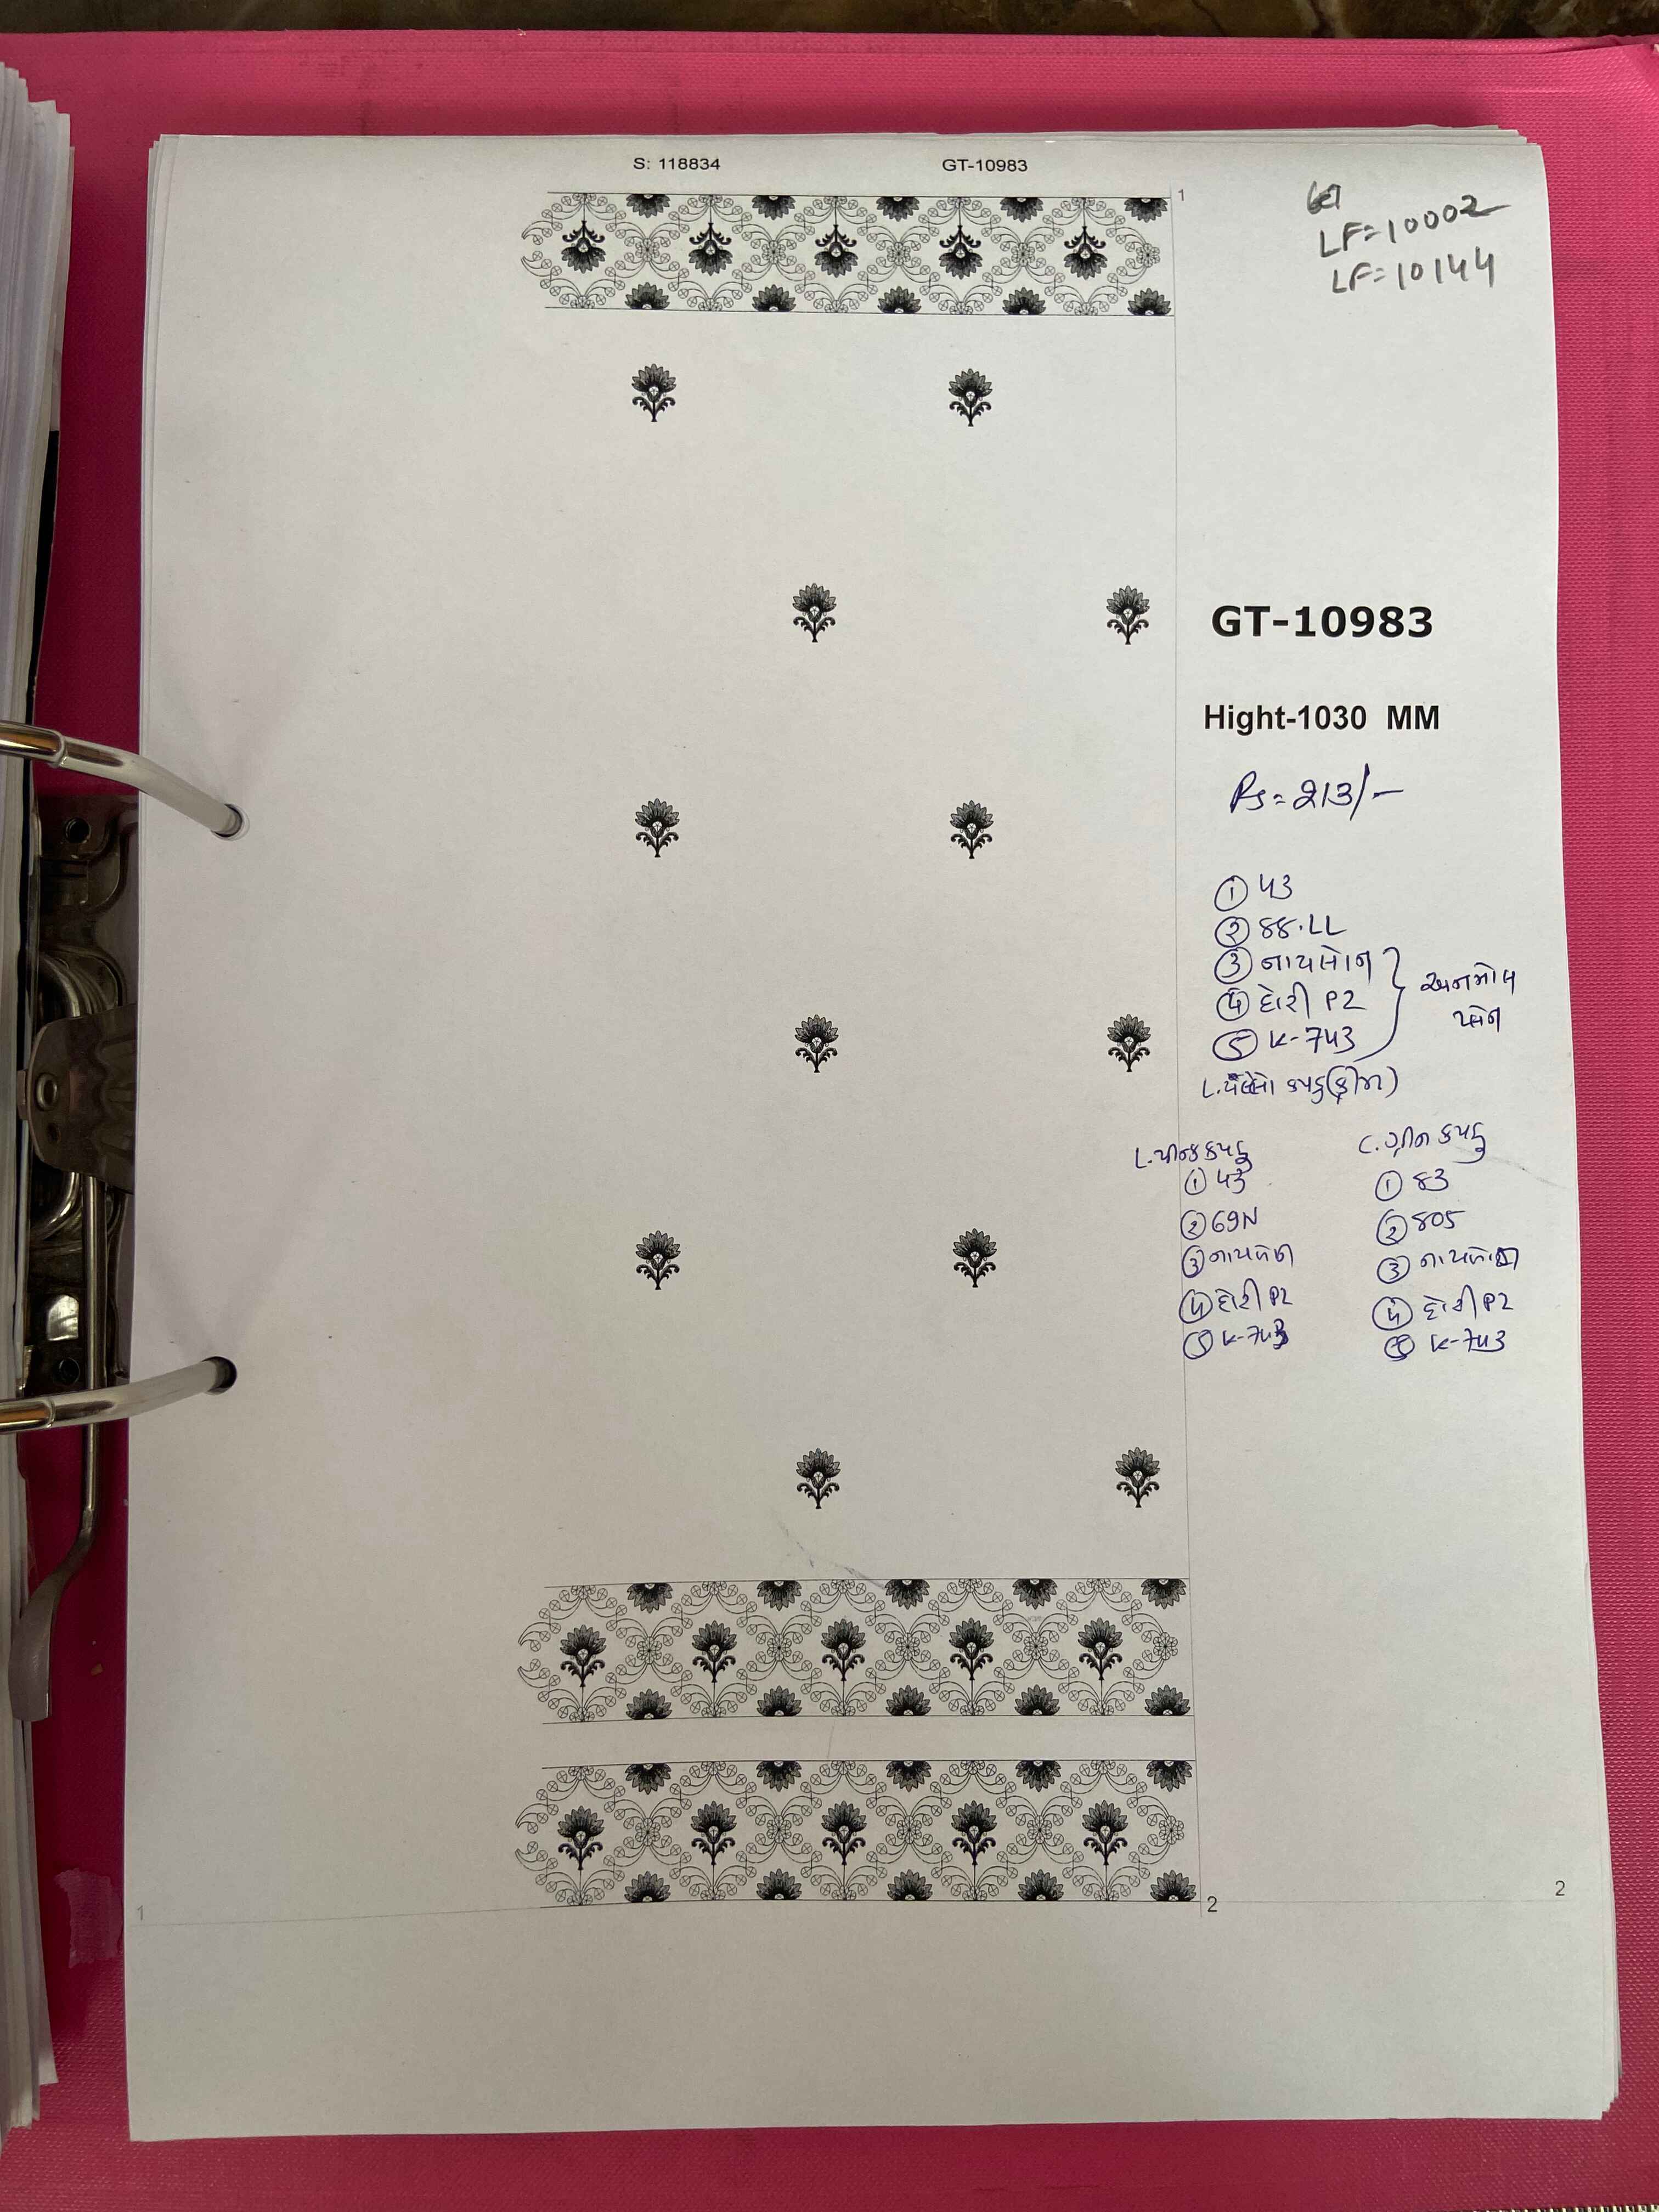 S: 118834 GT-10983
1
LF=10002
LF=10144
GT-10983
Hight-1030 MM
Rs=213/-
① ५3
② ४४.LL
③ નાયલોન
④ દોરી P2
⑤ K-7૫3
અનમોલ
પ્લેન
L.યલ્લો કાપડ (ક્રીમ)
L.પીન્ક કાપડ
① ૫3
② 69N
③ નાયલોન
④ દોરી P2
⑤ K-7૫3
C.ગ્રીન કાપડ
① ૪3
② ૪05
③ નાયલોન
④ દોરી P2
⑤ K-7૫3
1 2 2